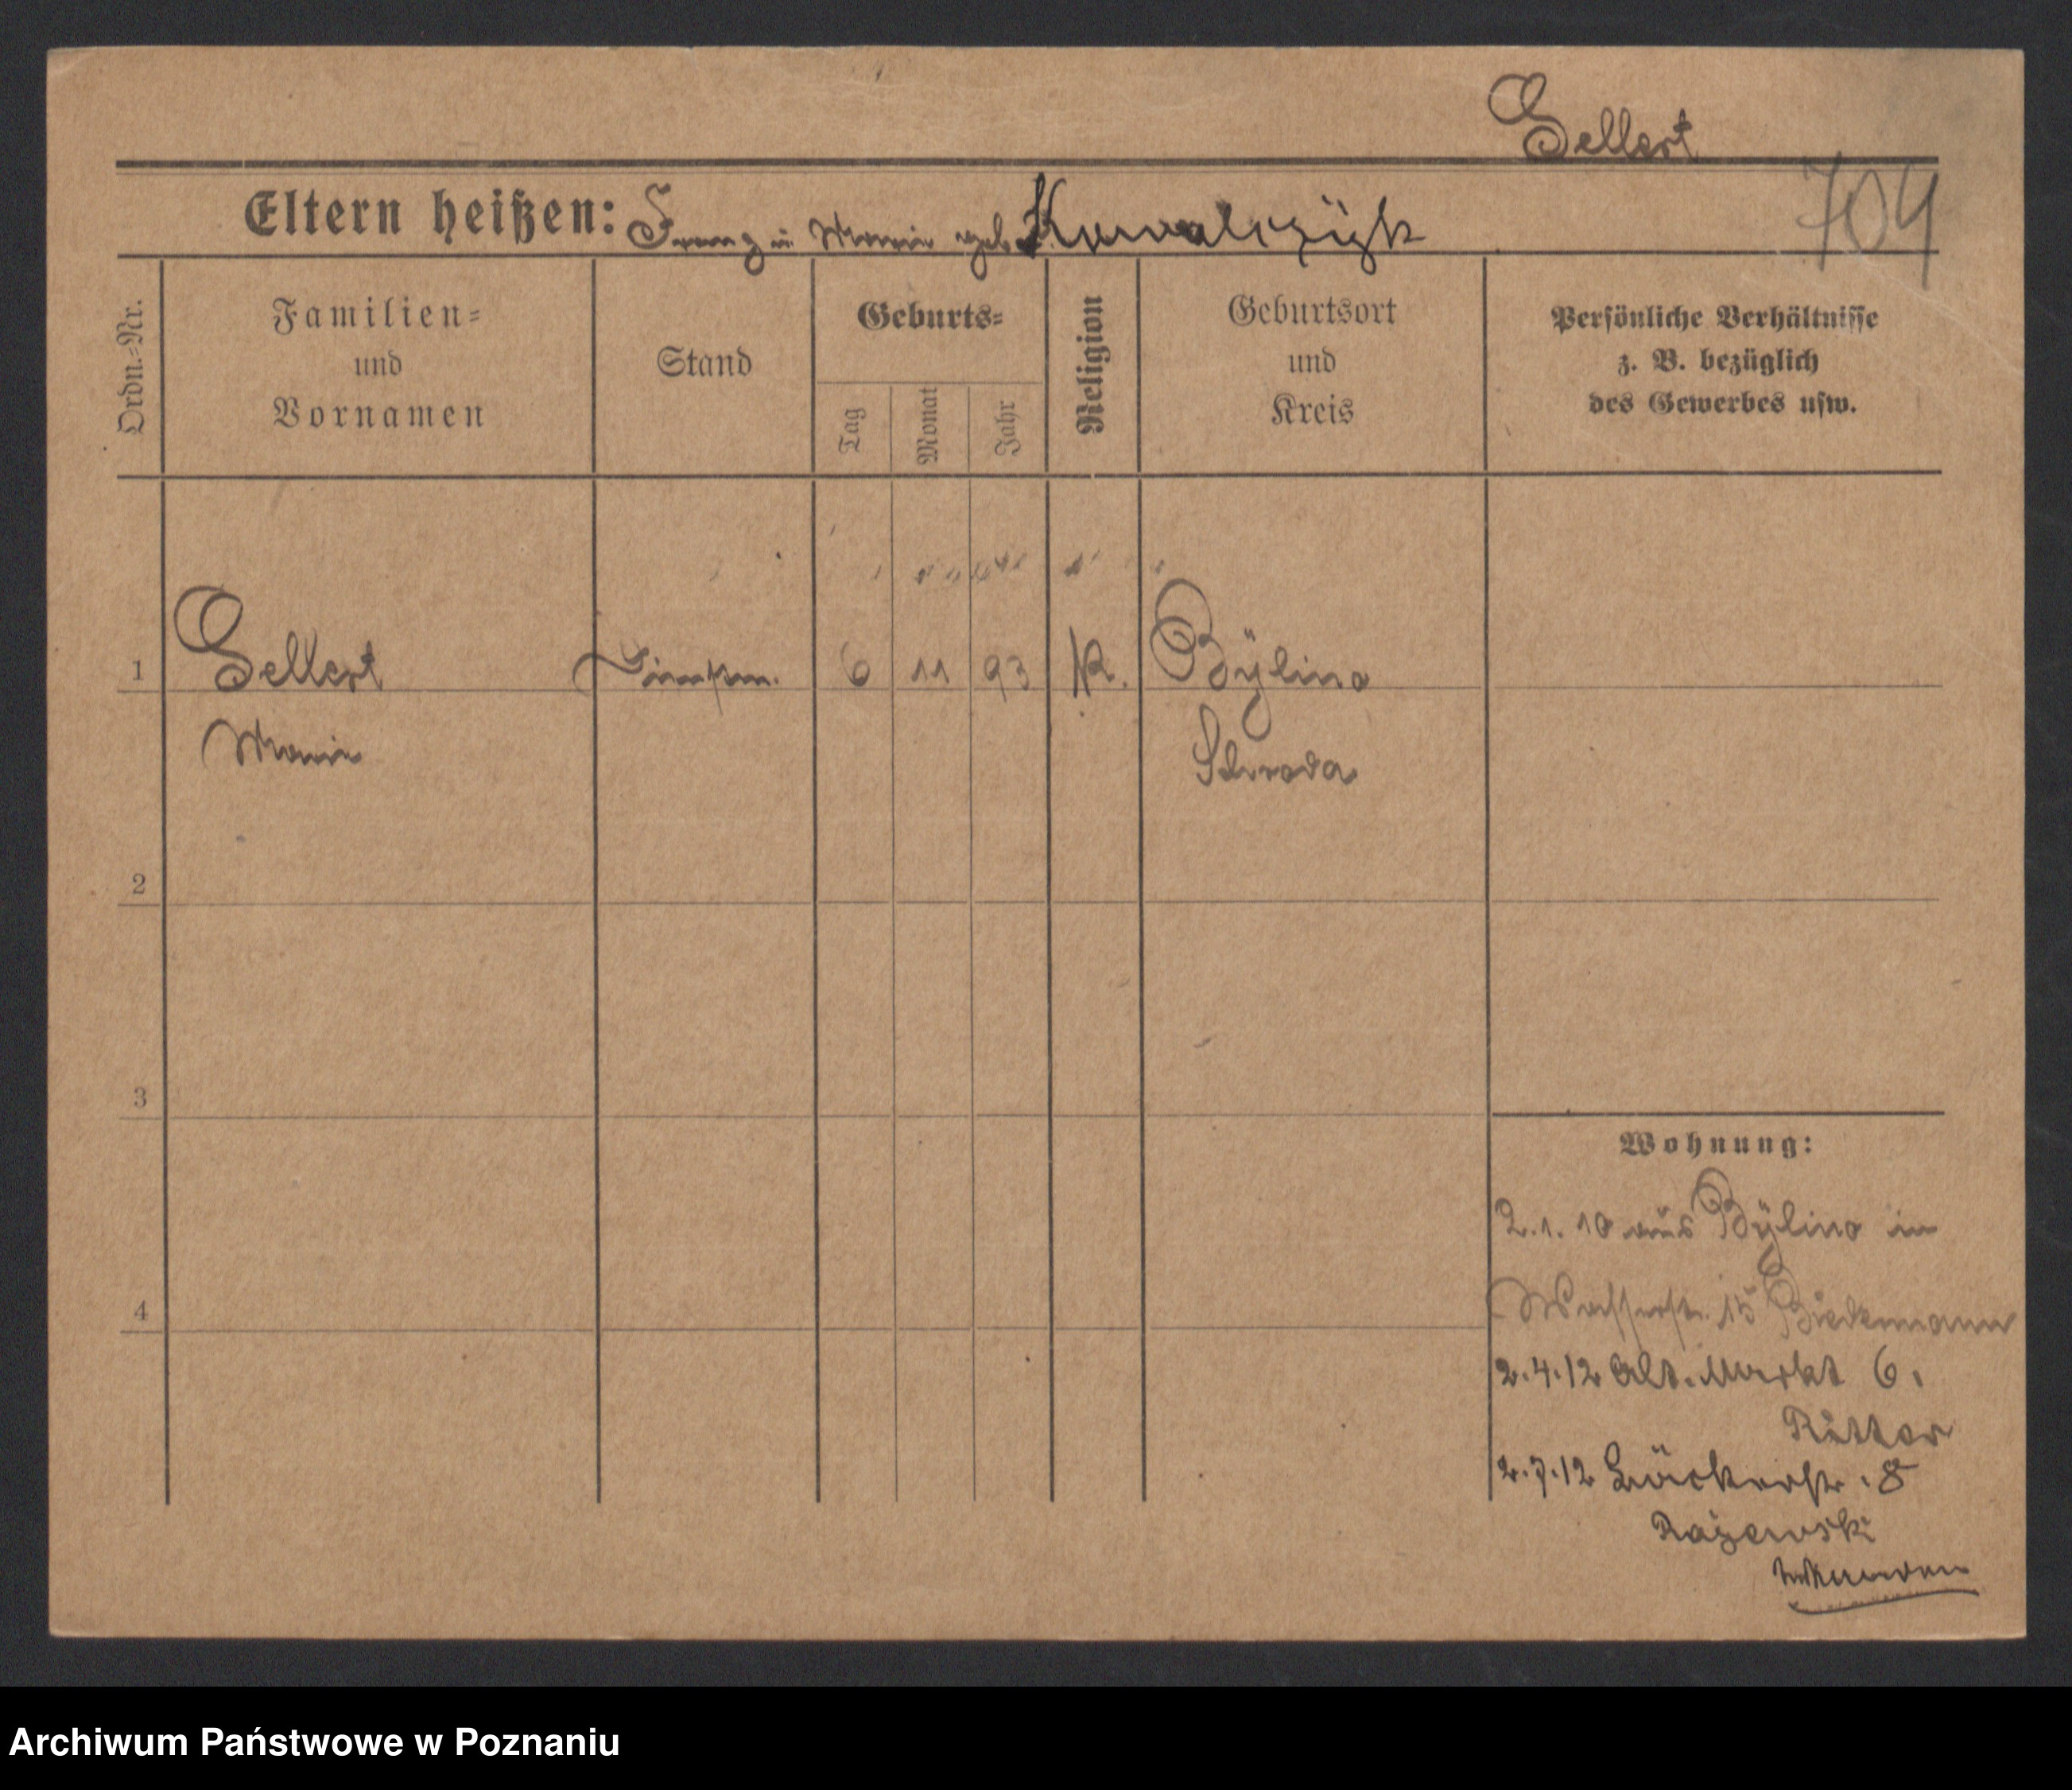 Gellert
704
Eltern heißen: Franz u. Maria geb. Kowalczÿk
Ordn.=Nr.
Familien=
und
Vornamen
Stand
Geburts=
Tag
Monat
Jahr
Religion
Geburtsort
und
Kreis
Persönliche Verhältnisse
z. B. bezüglich
des Gewerbes usw.
1
Gellert
Dienstm.
6
11
93
K.
Bÿlino
Maria
Schroda
2
3
4
Wohnung:
2.1.10 aus Bÿlino in
Wasserstr. 15
2.4.12 Alt. Markt 6.
Ritter
2.7.12 Bäckerstr. 8
Rajewski
Archiwum Państwowe w Poznaniu